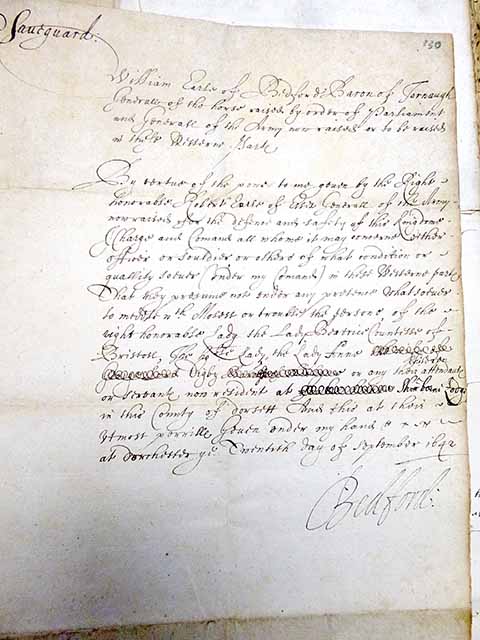 Saveguard:
130
William Earle of Bedford Baron of Tornaugh
Generall of the horse raised by order of Parliament
and Generall of the Army now raised or to be raised
in these Westerne Parts
By vertue of the power to me geven by the Right
honorable Robert Earle of Essex Generall of the Army
now raised for the defence and safety of this Kingdome
I Charge and Comand all whome it may concerne either
officer or souldier or others of what condition or
quallity soever (under my Comand) in these Westerne parts
That they presume not under any pretence whatsoever
to meddle with Molest or trouble the persons, of the
right honorable Lady the Lady Beatrice Countesse of
Bristoll, the Lady the Lady Anne
children
Digby or any their attendants
or servants now resident at Sherborne Lodge
in this County of dorsett And this at their
utmost perrille Geven under my hand
at dorchester ye Twentieth day of September 1642
Bedford: